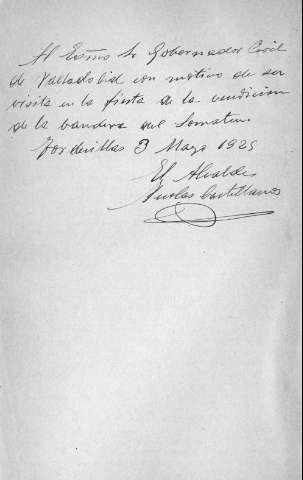 Al Exsmo Sr Gobernador Civil
de Valladolid con motivo de ser
visita en la fiesta de la vendicion
de la bandera del Somaten.
Tordesillas 3 Mayo 1925
El Alcalde
Nicolas Castellanos